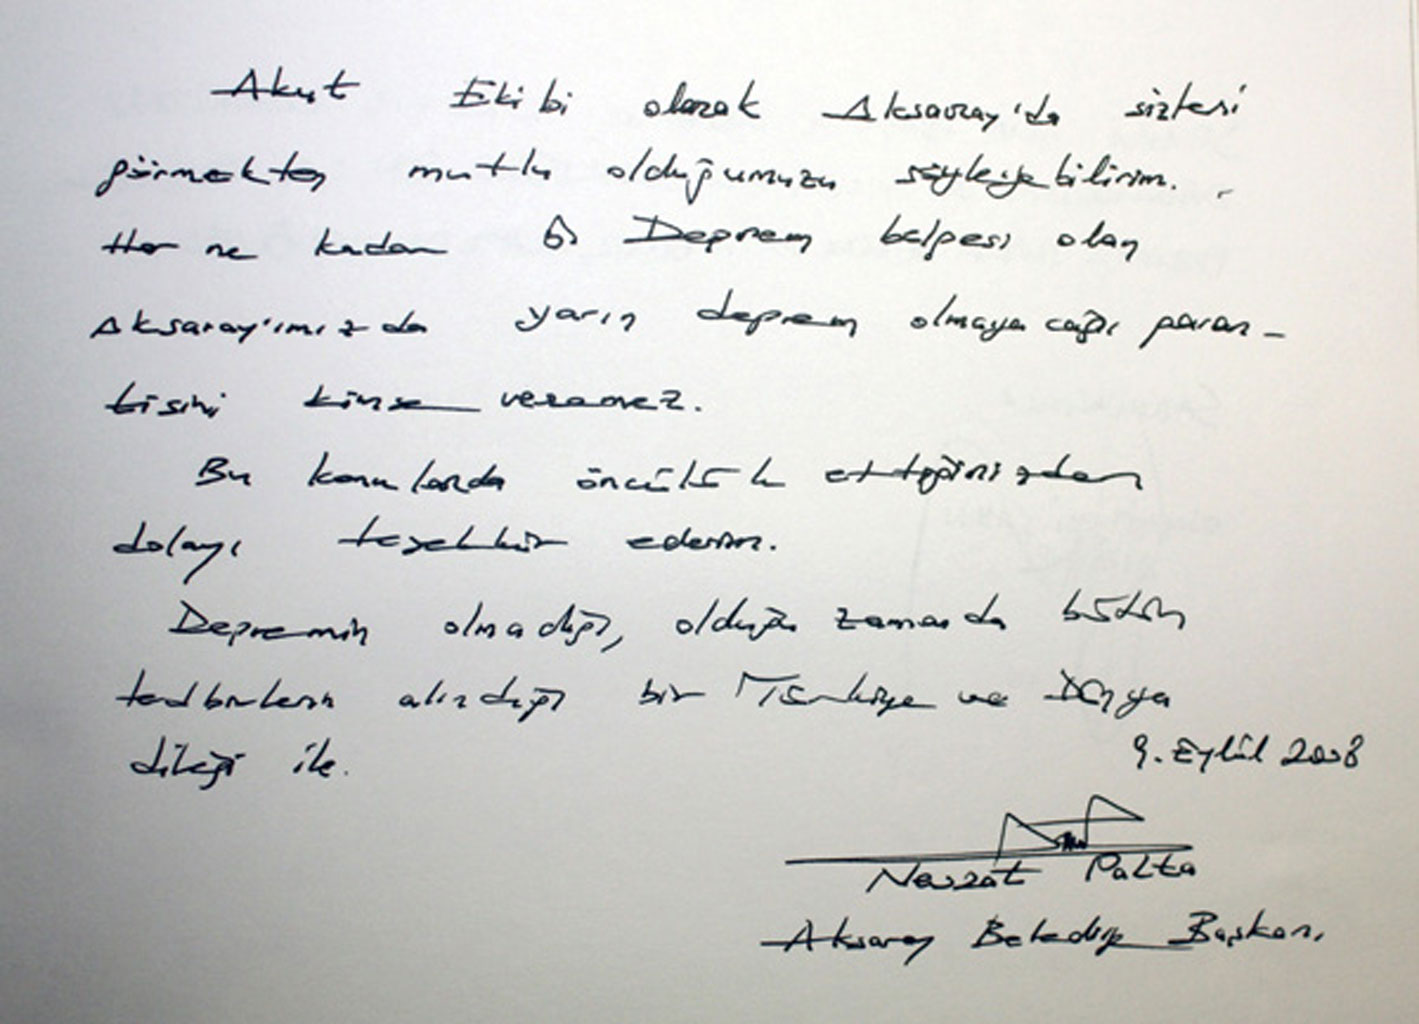 Akut Ekibi olarak Aksaray'da sizleri
görmekten mutlu olduğumuzu söyleyebilirim.
Her ne kadar 6. Deprem bölgesi olan
Aksaray'ımızda yarın deprem olmayacağı garan-
tisini kimse veremez.
Bu konularda öncülük ettiğinizden
dolayı teşekkür ederim.
Depremin olmadığı, olduğu zamanda bütün
tedbirlerin alındığı bir Türkiye ve Dünya
dileği ile.
9. Eylül 2008
Nevzat Palta
Aksaray Belediye Başkanı